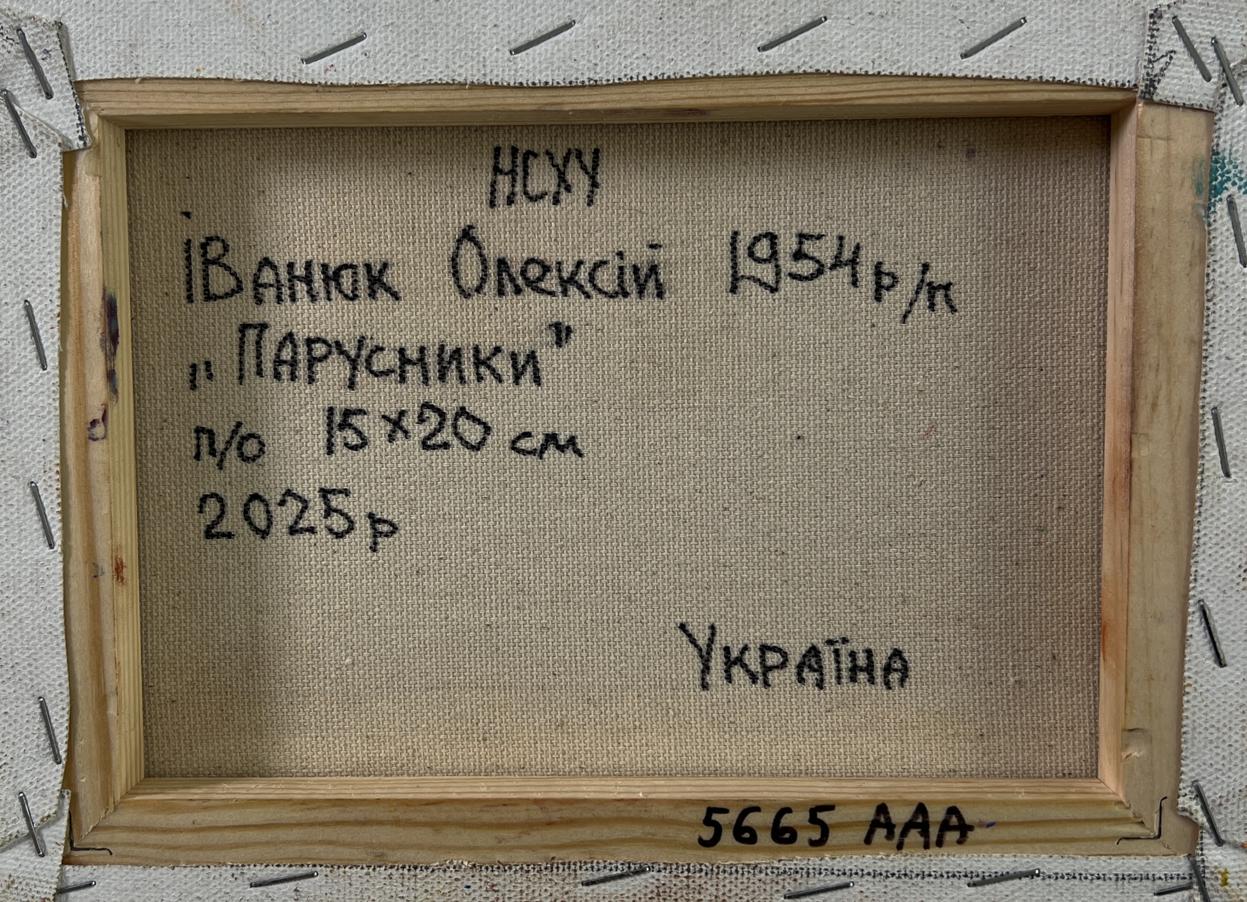 НСХУ
Іванюк Олексій 1954 р/н
„Парусники”
п/о 15×20 см
2025р
Україна
5665 ААА